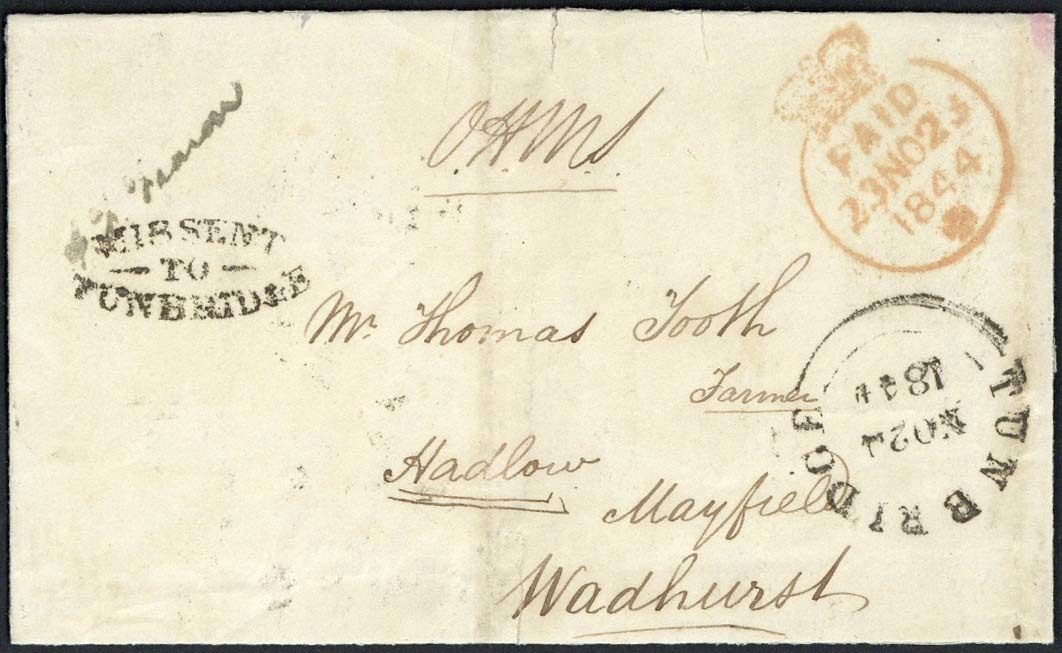 O.H.M.S
PAID
23NO23
1844
MISSENT
TO
TUNBRIDGE
Mr. Thomas Tooth
Farmer
Hadlow
Mayfield
Wadhurst
TUNBRIDGE
NO24
1844